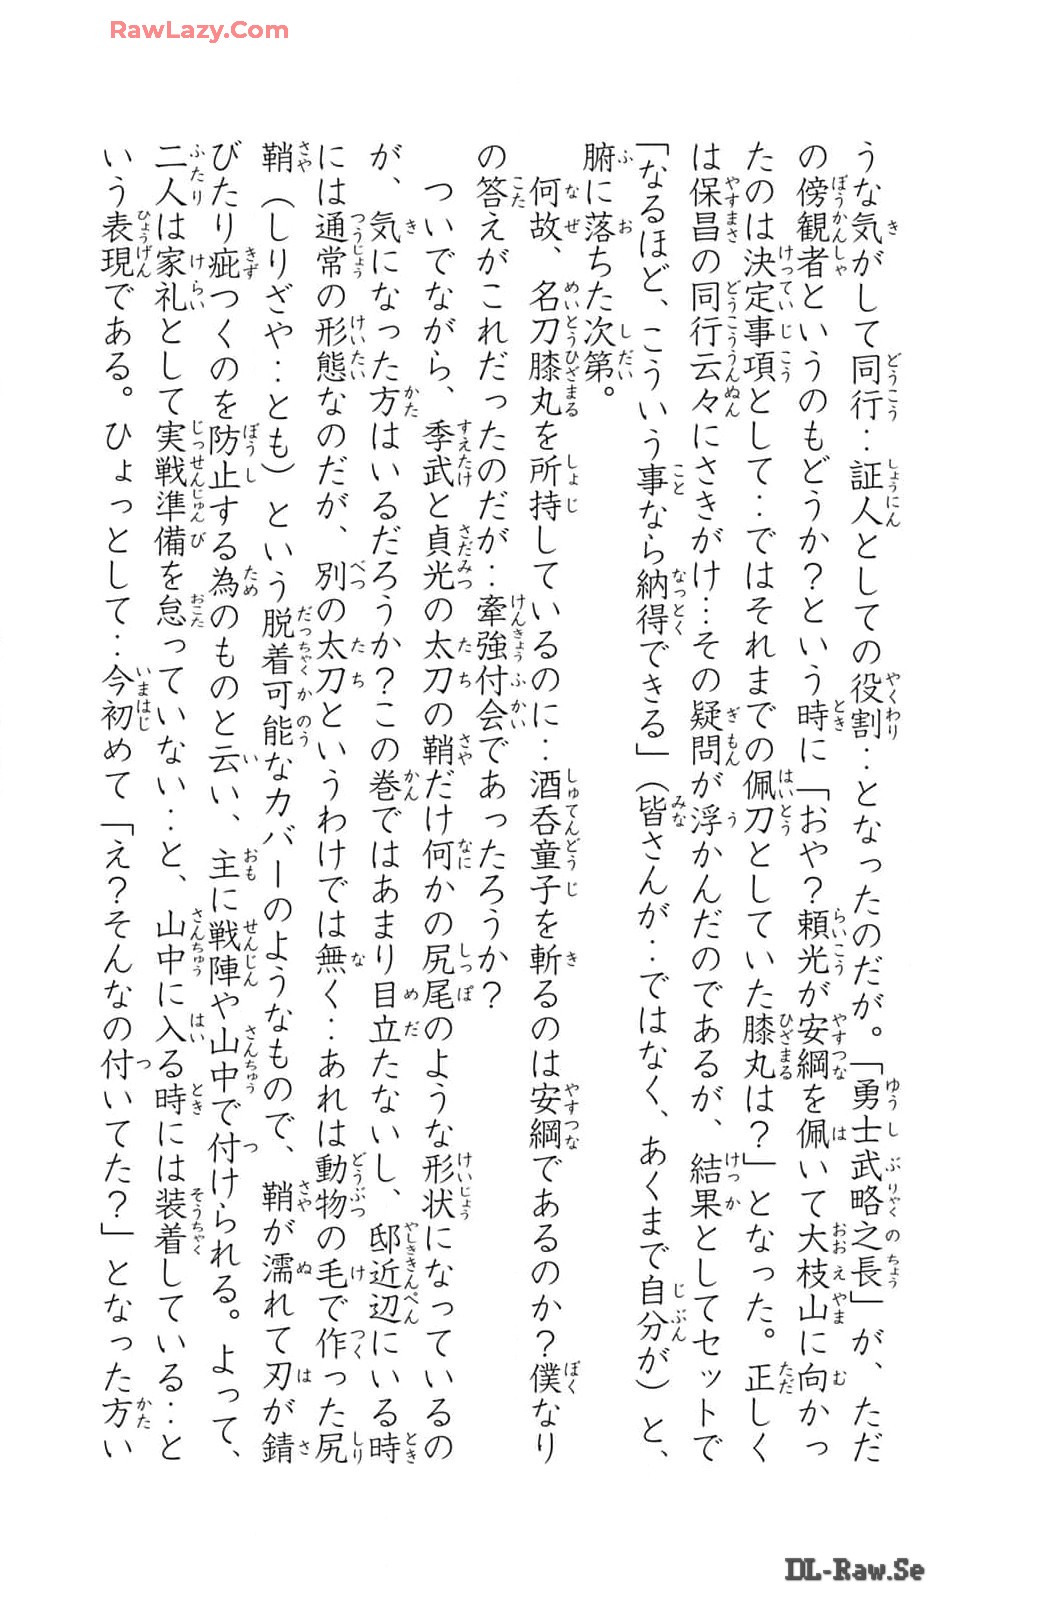 RawLazy.Com
うな気がして同行‥証人としての役割‥となったのだが。「勇士武略之長」が、ただ
の傍観者というのもどうか？という時に「おや？頼光が安綱を佩いて大枝山に向かっ
たのは決定事項として‥ではそれまでの佩刀としていた膝丸は？」となった。正しく
は保昌の同行云々にさきがけ…その疑問が浮かんだのであるが、結果としてセットで
「なるほど、こういう事なら納得できる」（皆さんが‥ではなく、あくまで自分が）と、
腑に落ちた次第。
何故、名刀膝丸を所持しているのに‥酒呑童子を斬るのは安綱であるのか？僕なり
の答えがこれだったのだが‥牽強付会であったろうか？
ついでながら、季武と貞光の太刀の鞘だけ何かの尻尾のような形状になっているの
が、気になった方はいるだろうか？この巻ではあまり目立たないし、邸近辺にいる時
には通常の形態なのだが、別の太刀というわけでは無く‥あれは動物の毛で作った尻
鞘（しりざや‥とも）という脱着可能なカバーのようなもので、鞘が濡れて刃が錆
びたり疵つくのを防止する為のものと云い、主に戦陣や山中で付けられる。よって、
二人は家礼として実戦準備を怠っていない‥と、山中に入る時には装着している‥と
いう表現である。ひょっとして‥今初めて「え？そんなの付いてた？」となった方い
DL-Raw.Se